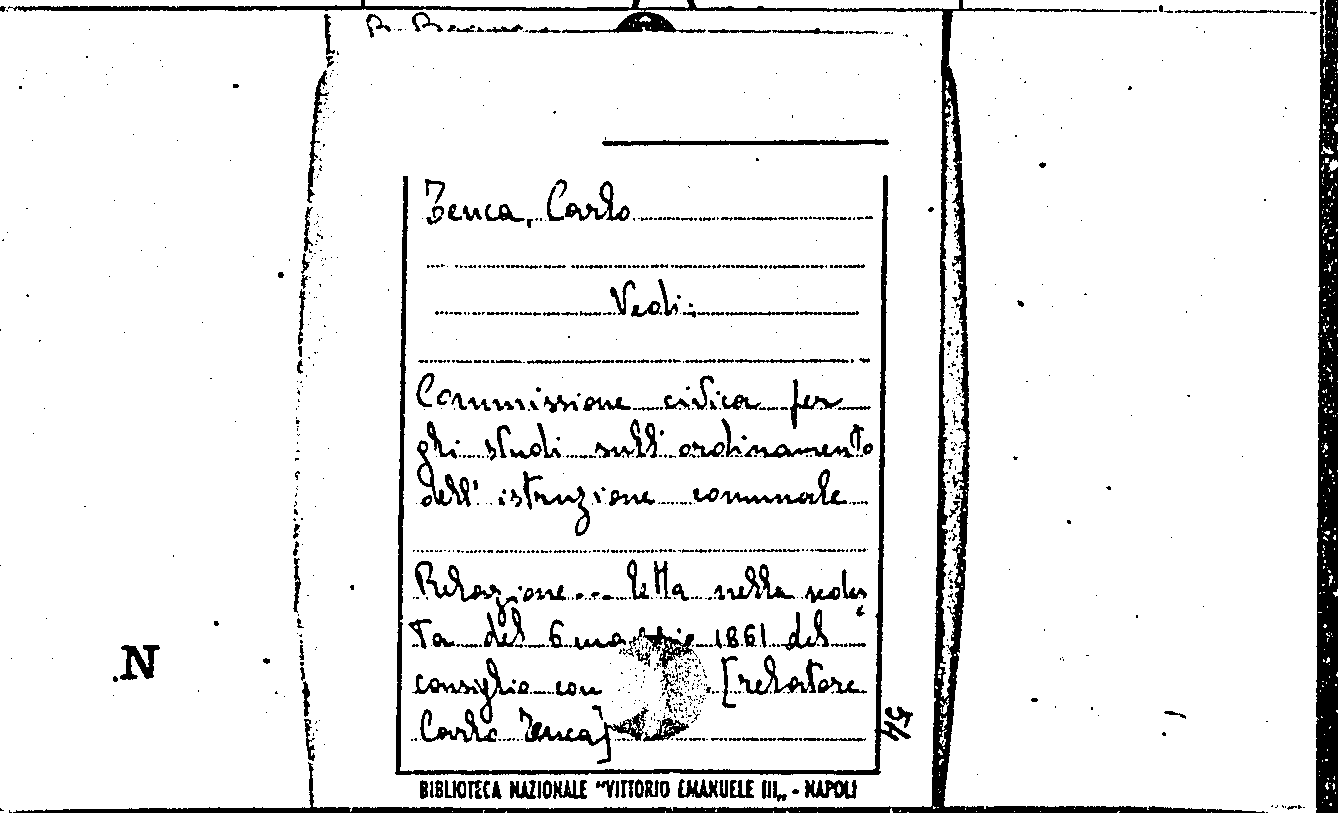 Tenca, Carlo
Vedi:
Commissione civica per
gli studi sull'ordinamento
dell'istruzione comunale
Relazione... letta nella sedu
ta del 6 maggio 1861 del
consiglio com [relatore
Carlo Tenca]
54
N
BIBLIOTECA NAZIONALE "VITTORIO EMANUELE III„ - NAPOLI